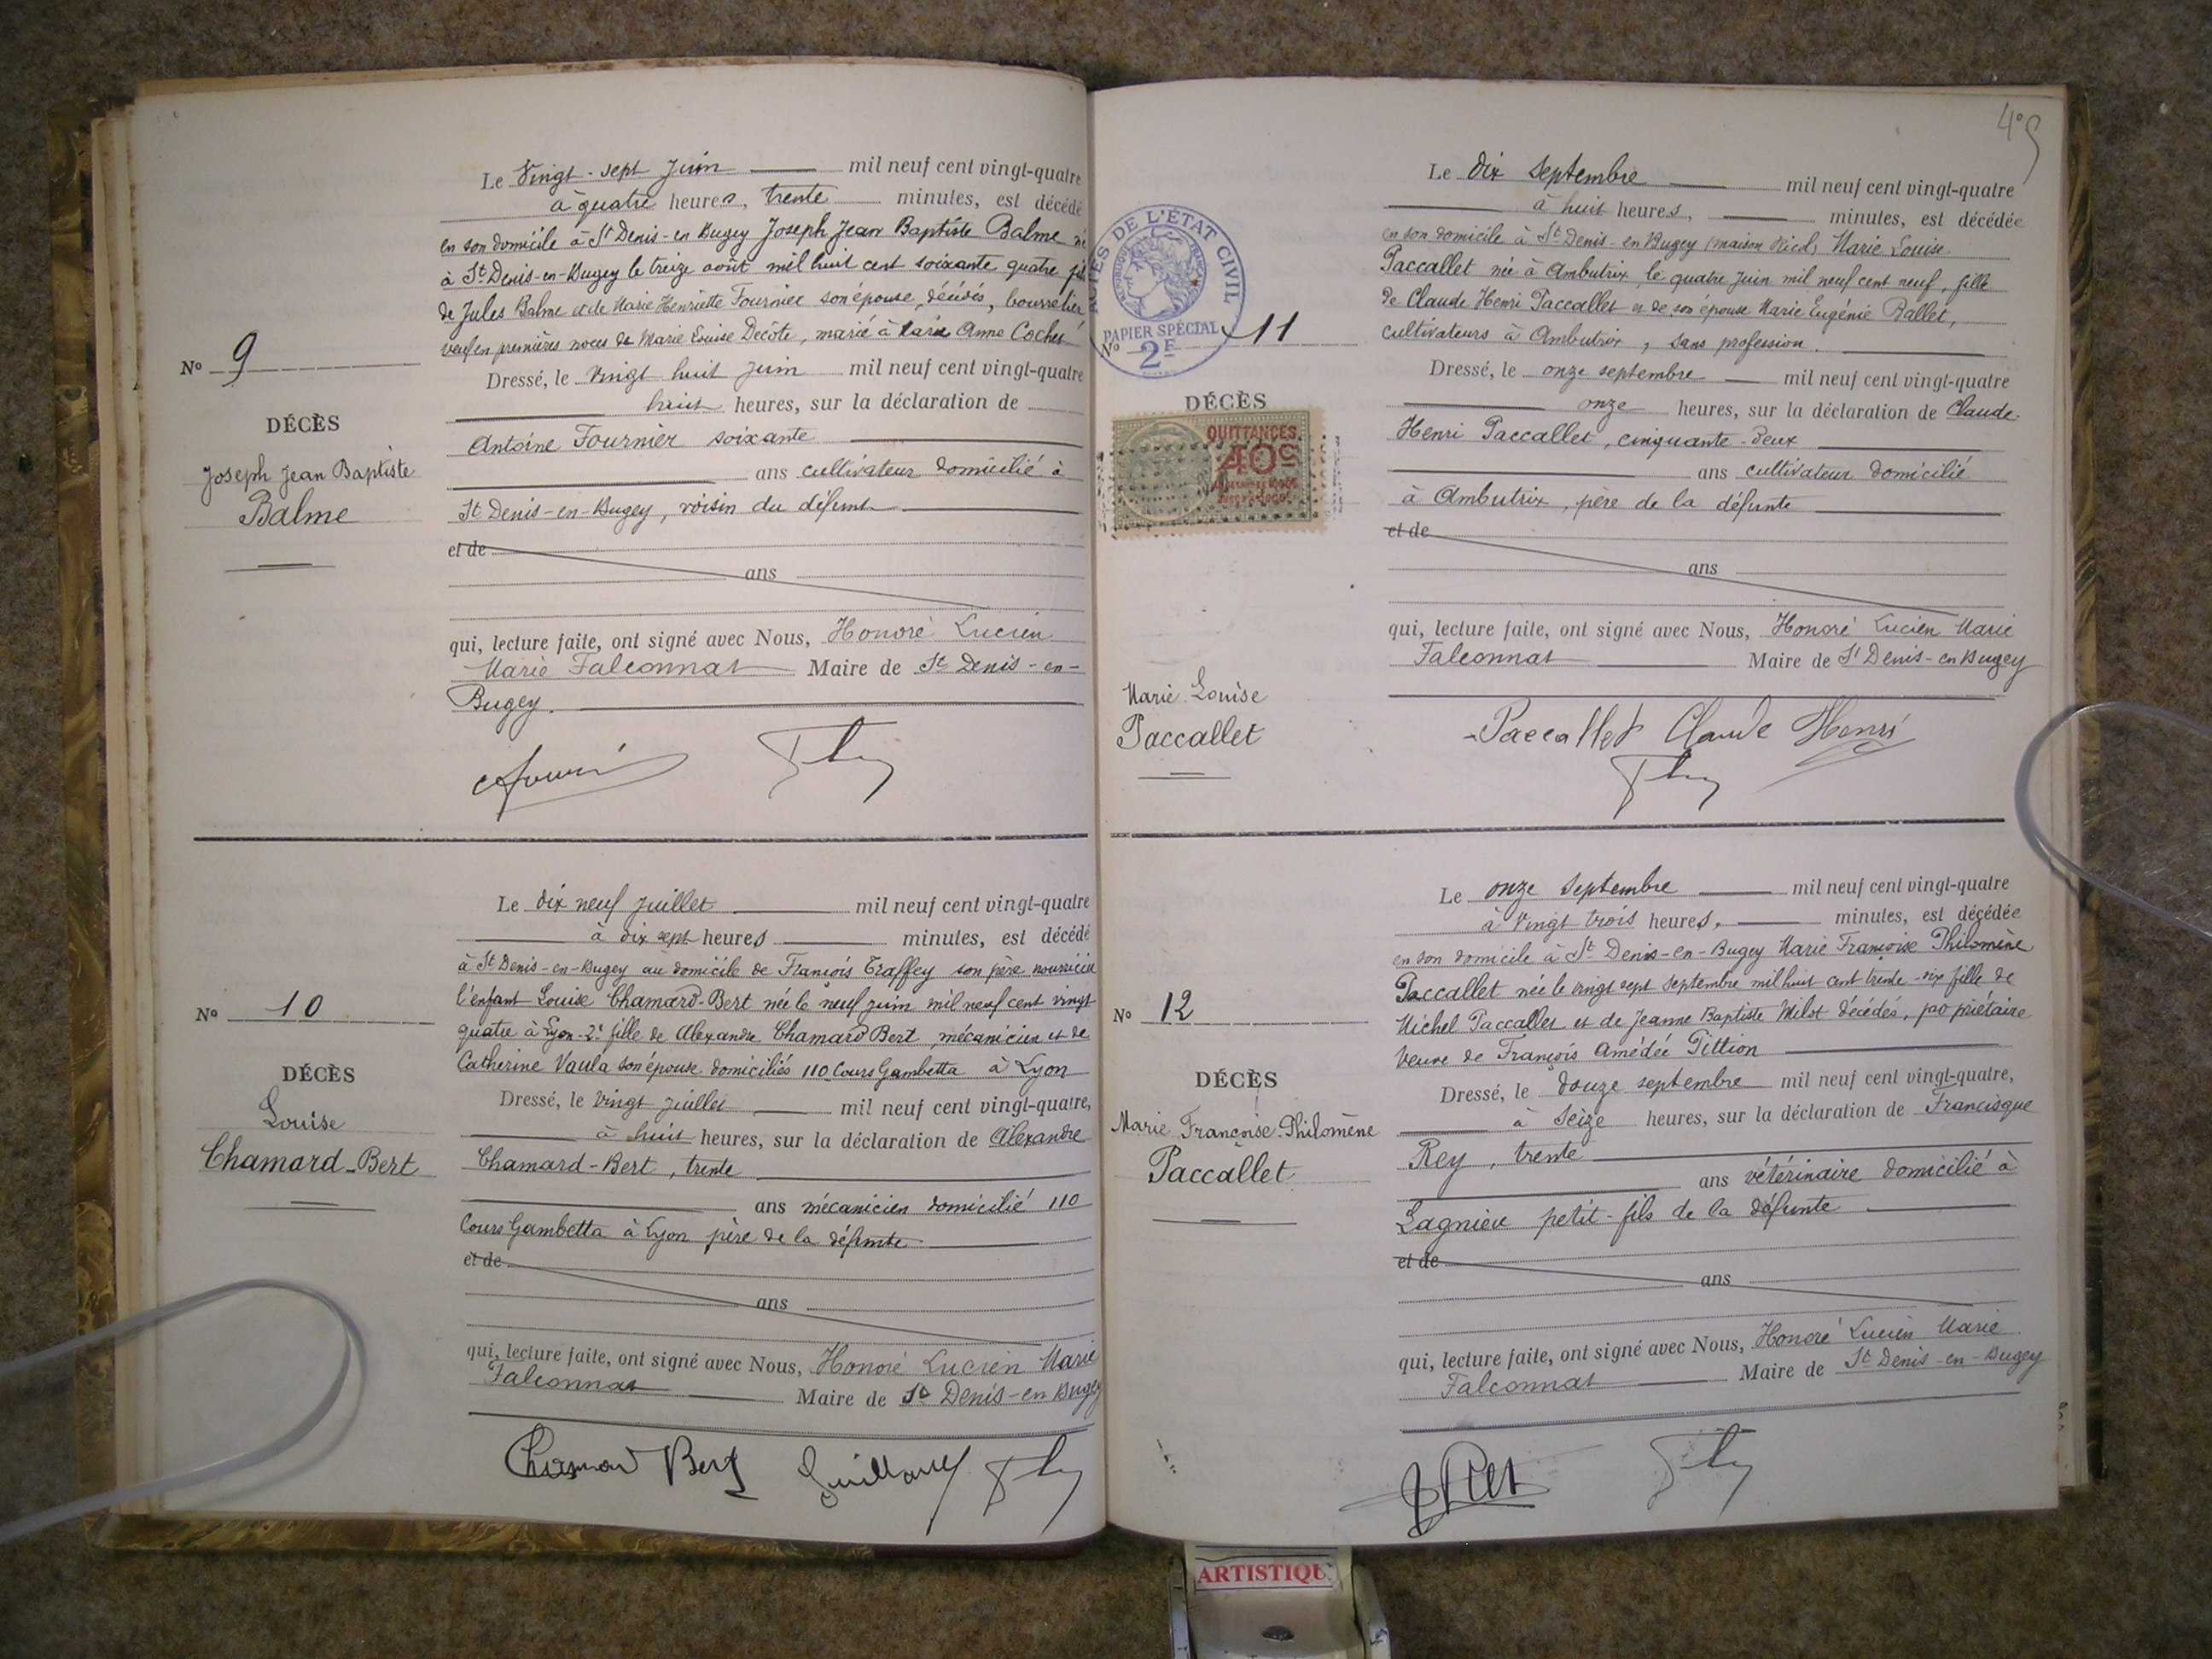 Le Vingt-sept Juin mil neuf cent vingt-quatre
à quatre heures, trente minutes, est décédé
en son domicile à St Denis-en Bugey Joseph Jean Baptiste Balme né
à St Denis-en-Bugey le treize août mil huit cent soixante quatre fils
de Jules Balme et de Marie Henriette Fournier son épouse, décédés, bourrelier
veuf en premières noces de Marie Louise Decôte, marié à Marie Anne Coché
No 9
Dressé, le vingt huit juin mil neuf cent vingt-quatre
huit heures, sur la déclaration de
DÉCÈS
Antoine Fournier soixante
Joseph Jean Baptiste
ans cultivateur domicilié à
Balme
St Denis-en-Bugey, voisin du défunt
et de
ans
qui, lecture faite, ont signé avec Nous, Honoré Lucien
Marie Falconnat Maire de St Denis-en-
Bugey.
Le dix neuf juillet mil neuf cent vingt-quatre
à dix sept heures minutes, est décédé
à St Denis-en-Bugey au domicile de François Traffey son père nourricier
l'enfant Louise Chamard-Bert née le neuf juin mil neuf cent vingt
No 10
quatre à Lyon-2e fille de Alexandre Chamard Bert, mécanicien et de
Catherine Vaula son épouse domiciliés 110 Cours Gambetta à Lyon
DÉCÈS
Dressé, le vingt juillet mil neuf cent vingt-quatre,
Louise
à huit heures, sur la déclaration de Alexandre
Chamard-Bert
Chamard-Bert, trente
ans mécanicien domicilié 110
Cours Gambetta à Lyon père de la défunte
et de
ans
qui, lecture faite, ont signé avec Nous, Honoré Lucien Marie
Falconnat Maire de St Denis-en Bugey
Chamard Bert
40
Le dix septembre mil neuf cent vingt-quatre
à huit heures, minutes, est décédée
en son domicile à St Denis-en Bugey (maison Nicod) Marie Louise
Paccallet née à Ambutrix, le quatre juin mil neuf cent neuf, fille
de Claude Henri Paccallet et de son épouse Marie Eugénie Ballet,
cultivateurs à Ambutrix, sans profession.
ACTES DE L'ÉTAT CIVIL
RÉPUBLIQUE FRANÇAISE
PAPIER SPÉCIAL
2F
No 11
Dressé, le onze septembre mil neuf cent vingt-quatre
DÉCÈS
onze heures, sur la déclaration de Claude
QUITTANCES.
40c
Henri Paccallet, cinquante-deux
ans cultivateur domicilié
à Ambutrix, père de la défunte
et de
ans
qui, lecture faite, ont signé avec Nous, Honoré Lucien Marie
Falconnat Maire de St Denis-en Bugey
Marie Louise
Paccallet
Paccallet Claude Henri
Le onze septembre mil neuf cent vingt-quatre
à vingt trois heures, minutes, est décédée
en son domicile à St Denis-en-Bugey Marie Françoise Philomène
Paccallet née le vingt sept septembre mil huit cent trente-six fille de
Michel Paccallet et de Jeanne Baptiste Milot décédés, propriétaire
veuve de François Amédée Pittion
No 12
DÉCÈS
Dressé, le douze septembre mil neuf cent vingt-quatre,
à seize heures, sur la déclaration de Francisque
Marie Françoise Philomène
Paccallet
Rey, trente
ans vétérinaire domicilié à
Lagnieu petit-fils de la défunte
et de
ans
qui, lecture faite, ont signé avec Nous, Honoré Lucien Marie
Falconnat Maire de St Denis-en-Bugey
ARTISTIQU